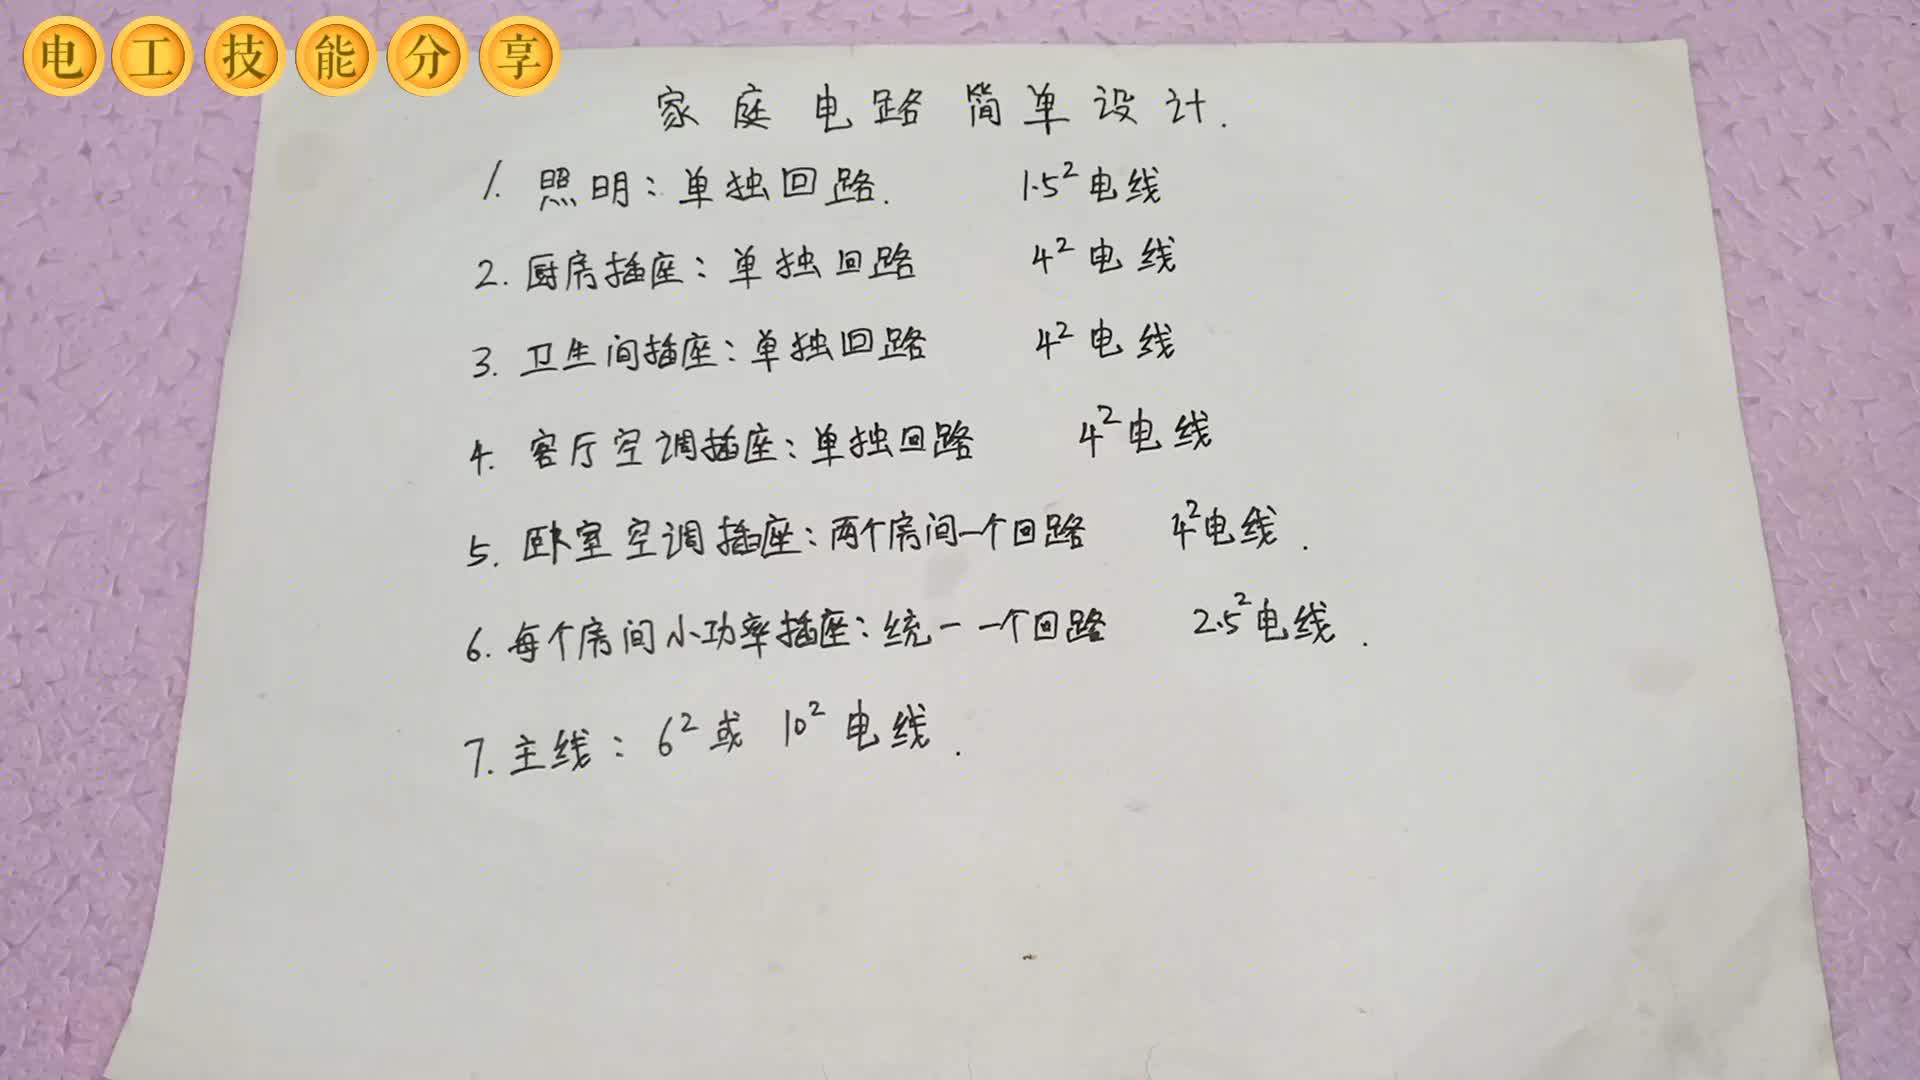 电工技能分享
家庭电路简单设计.
1. 照明：单独回路. 1.5² 电线
2. 厨房插座：单独回路 4² 电线
3. 卫生间插座：单独回路 4² 电线
4. 客厅空调插座：单独回路 4² 电线
5. 卧室空调插座：两个房间一个回路 4² 电线.
6. 每个房间小功率插座：统一一个回路 2.5² 电线.
7. 主线：6² 或 10² 电线.